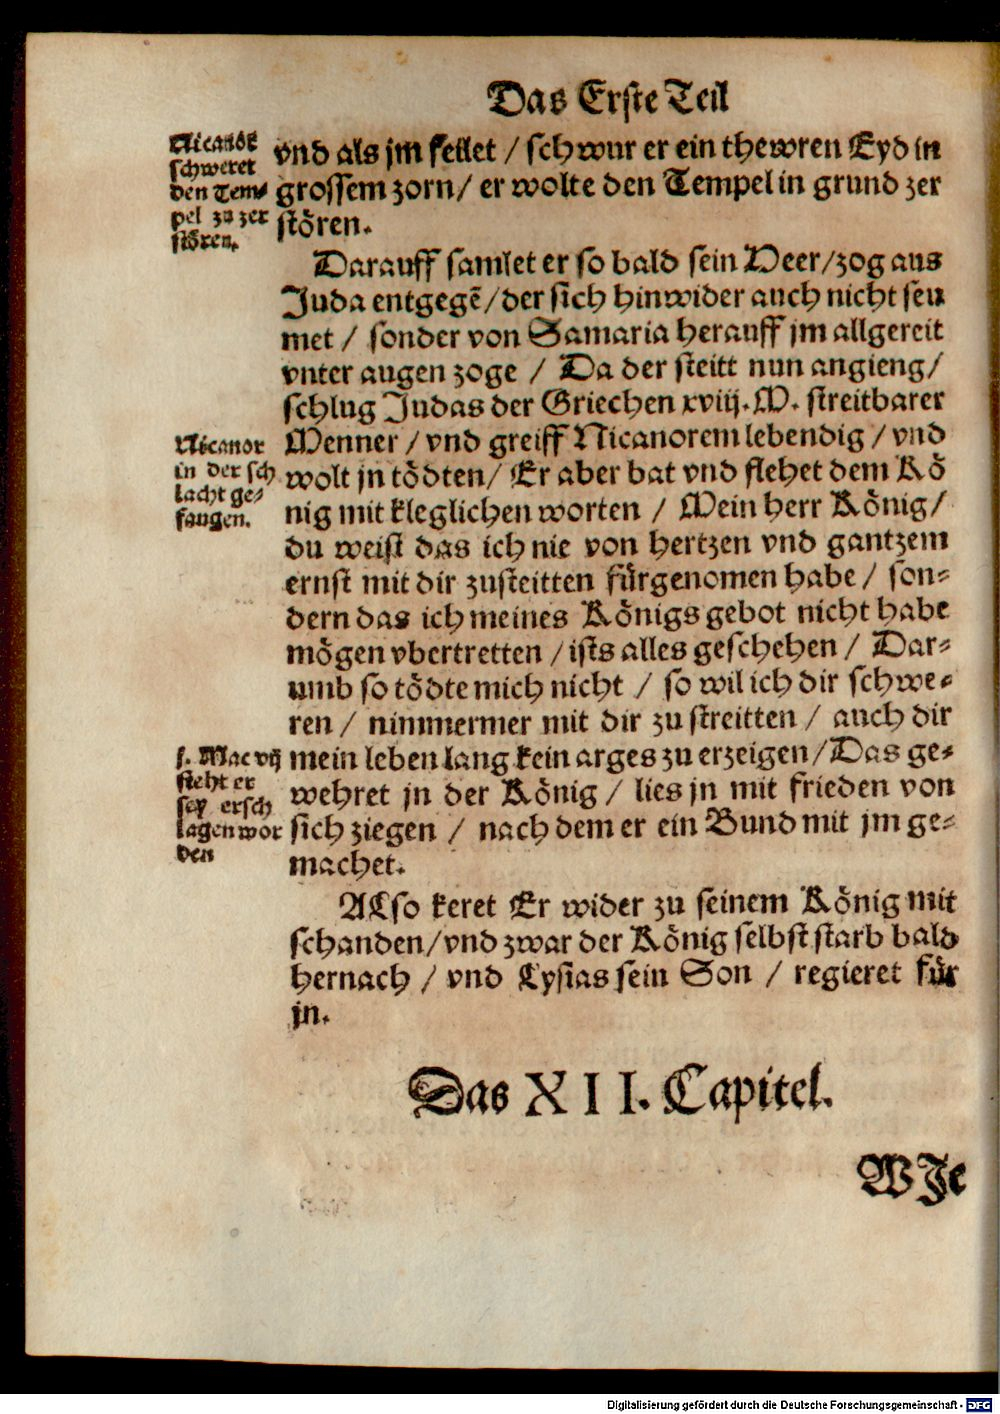 Das Erste Teil
Nicanor
schweret
den Tem⸗
pel zu zer
stören.
vnd als jm feilet / schwur er ein thewren Eyd in
grossem zorn / er wolte den Tempel in grund zer
stören.
Darauff samlet er so bald sein Heer / zog aus
Juda entgegẽ / der sich hinwider auch nicht seu
met / sonder von Samaria herauff jm allgereit
vnter augen zoge / Da der steitt nun angieng /
schlug Judas der Griechen xviij. M. streitbarer
Nicanor
in der sch
lacht ge⸗
fangen.
Menner / vnd greiff Nicanorem lebendig / vnd
wolt jn tödten / Er aber bat vnd flehet dem Kö
nig mit kleglichen worten / Mein herr König /
du weist das ich nie von hertzen vnd gantzem
ernst mit dir zusteitten fürgenomen habe / son⸗
dern das ich meines Königs gebot nicht habe
mögen vbertretten / ists alles geschehen / Dar⸗
umb so tödte mich nicht / so wil ich dir schwe⸗
ren / nimmermer mit dir zu streitten / auch dir
1. Mac vij
steht er
sey ersch
lagen wor
den
mein leben lang kein arges zu erzeigen / Das ge⸗
wehret jn der König / lies jn mit frieden von
sich ziegen / nach dem er ein Bund mit jm ge⸗
machet.
ALso keret Er wider zu seinem König mit
schanden / vnd zwar der König selbst starb bald
hernach / vnd Lysias sein Son / regieret für
jn.
Das XII. Capitel.
WJe
Digitalisierung gefördert durch die Deutsche Forschungsgemeinschaft - DFG